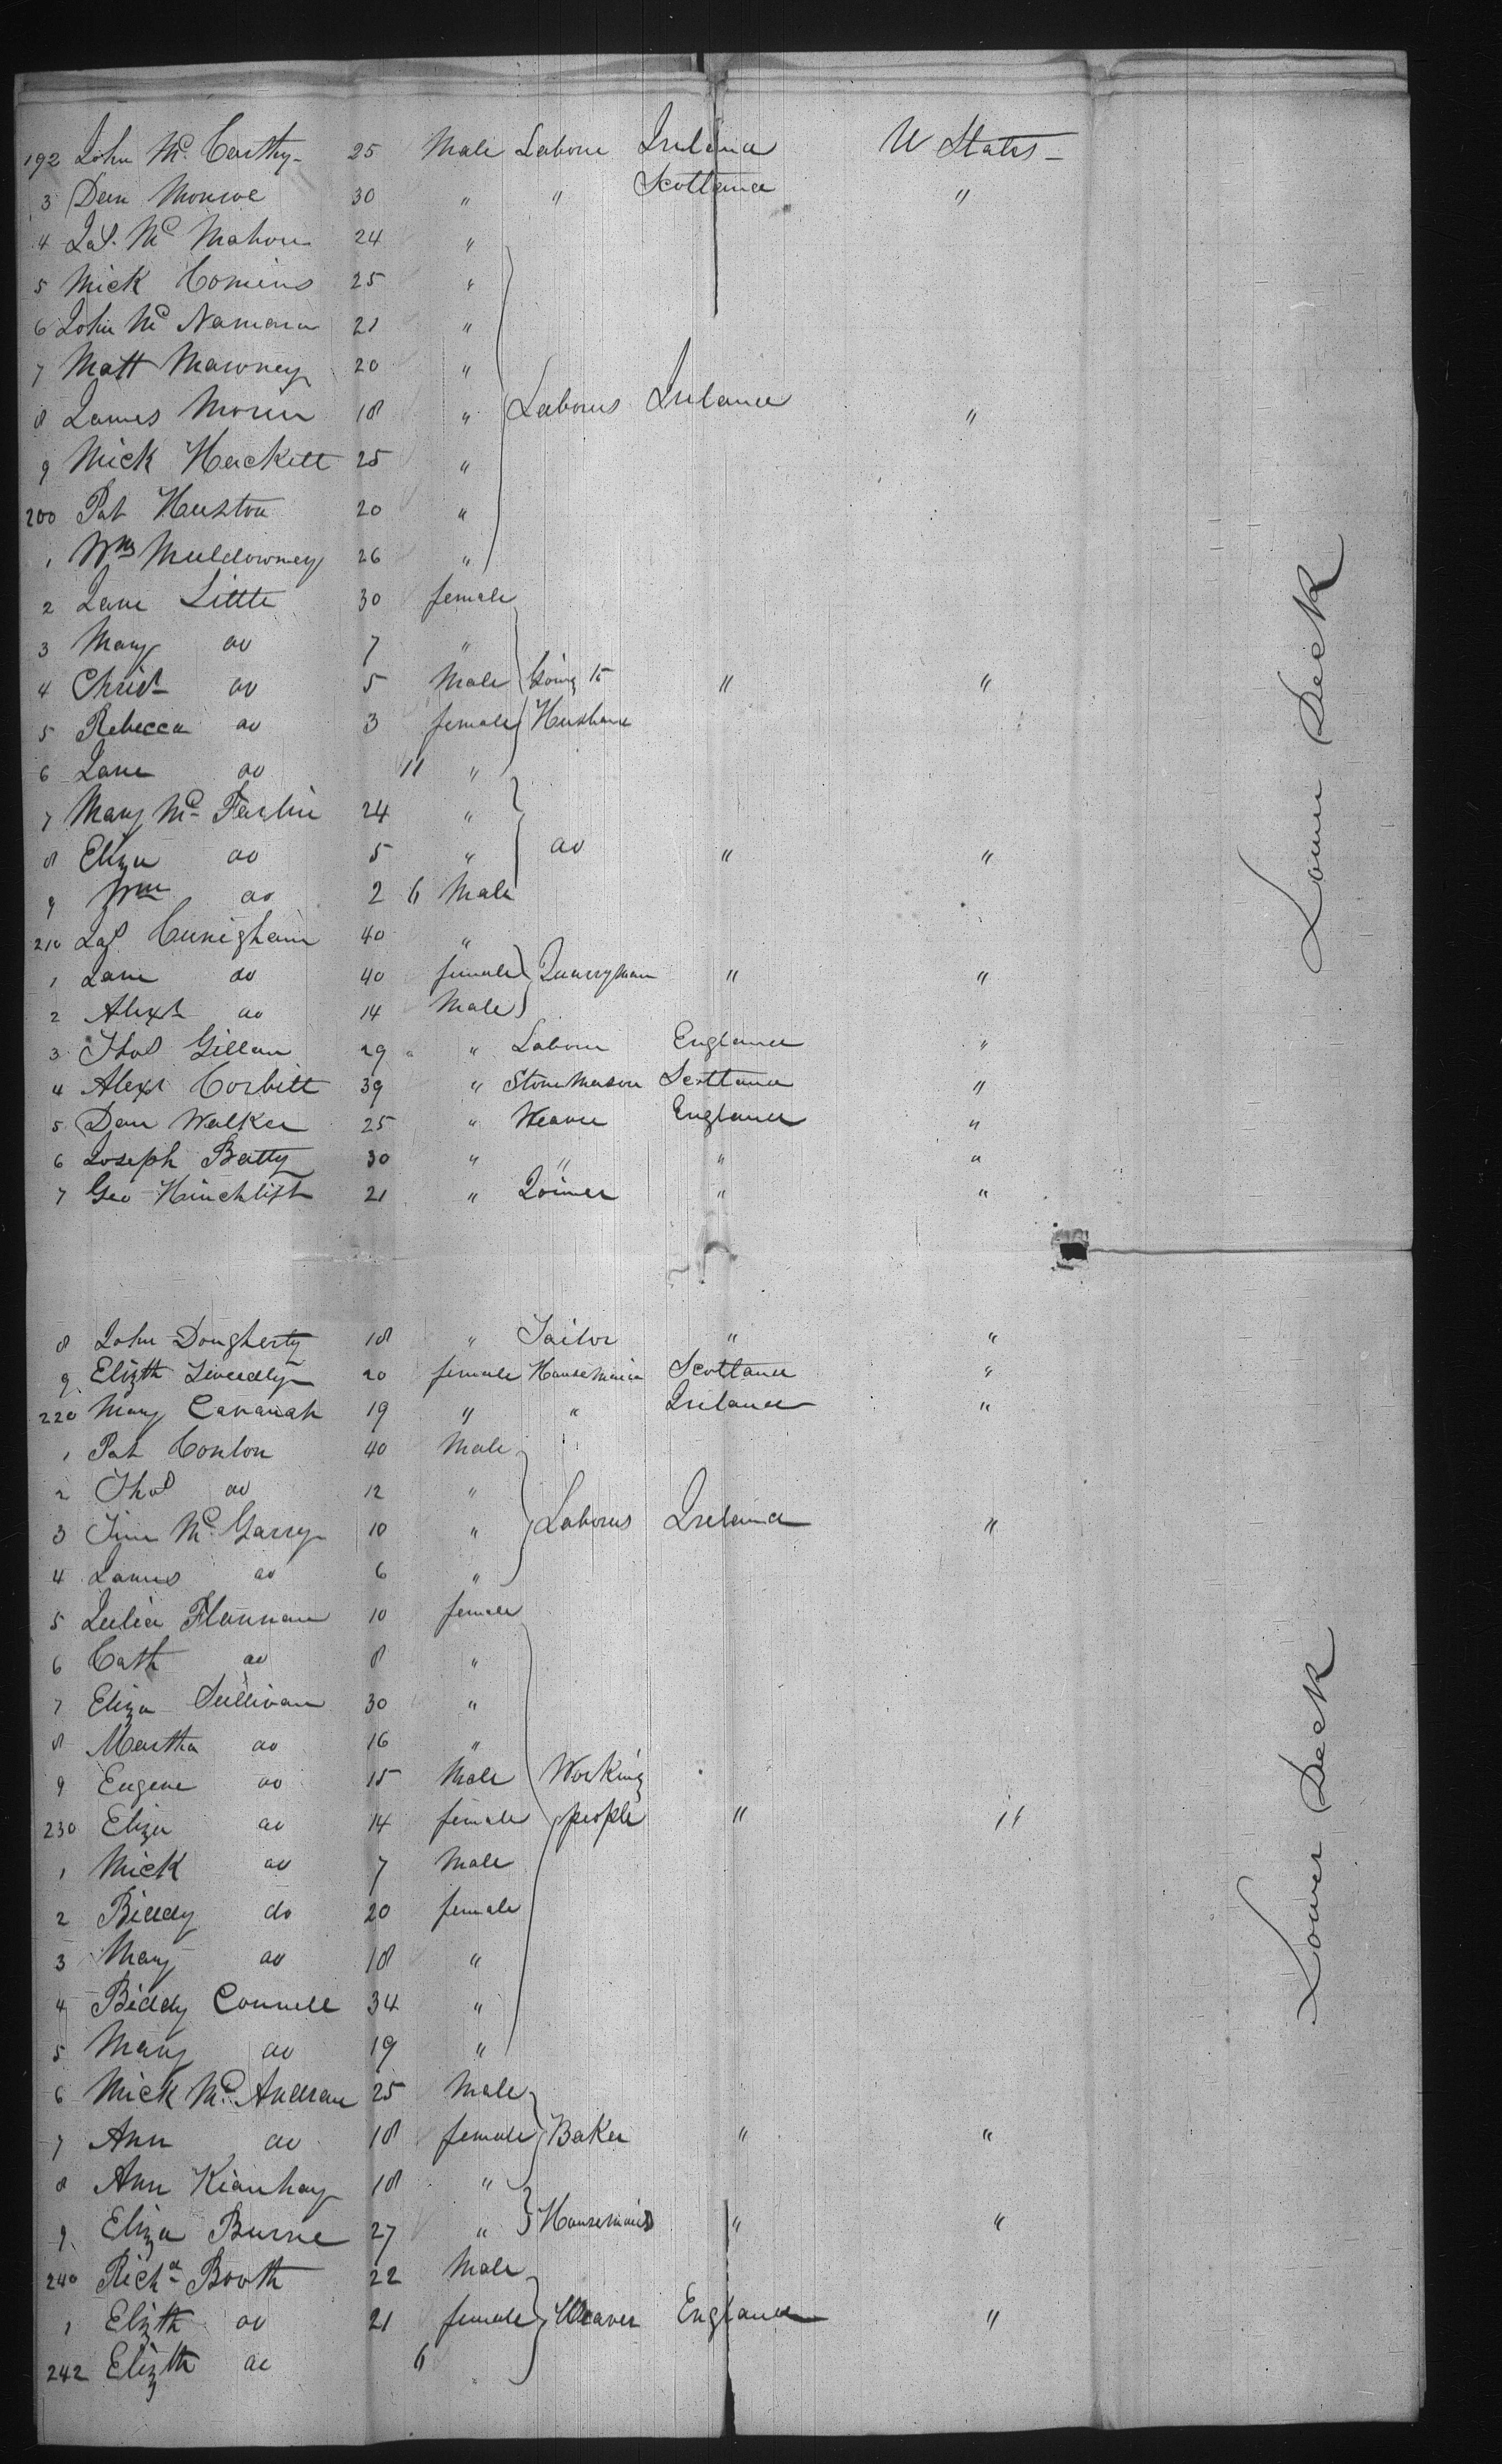 192 John Mc Carthy 25 Male Labour Ireland U States
3 Dan Monroe 30 " " Scotland "
4 Jas. Mc Mahon 24 "
5 Mick Comins 25 "
6 John Mc Namara 21 "
7 Matt Mawney 20 "
8 James Moran 18 " Labours Ireland "
9 Mick Hackett 25 "
200 Pat Huston 20 "
1 Wm Muldowney 26 "
2 Jane Little 30 female
3 Mary do 7 "
4 Christ do 5 Male Going to " "
5 Rebecca do 3 female Husband
6 Jane do 11 "
7 Mary Mc Farlin 24 "
8 Eliza do 5 " do " "
9 Wm do 2 6 Male
210 Jas Cunigham 40 "
1 Jane do 40 female Quarryman " "
2 Alexr do 14 Male
3 Thos Gillan 29 " Labour England "
4 Alexr Corbitt 39 " Stone Mason Scotland "
5 Dan Walker 25 " Weaver England "
6 Joseph Batty 30 " " " "
7 Geo Hinchlift 21 " Joiner " "
8 John Dougherty 18 " Tailor " "
9 Elizth Tweedly 20 female House Maid Scotland "
220 Mary Cavanah 19 " " Ireland "
1 Pat Conlon 40 Male
2 Thos do 12 "
3 Tim Mc Garry 10 " Labours Ireland "
4 James do 6 "
5 Julia Flannan 10 female
6 Cath do 8 "
7 Eliza Sullivan 30 "
8 Martha do 16 "
9 Eugene do 15 Male Working
230 Eliza do 14 female people " "
1 Mick do 7 Male
2 Biddy do 20 female
3 Mary do 18 "
4 Biddy Connell 34 "
5 Mary do 19 "
6 Mick Mc Andrau 25 Male
7 Ann do 18 female Baker " "
8 Ann Kianhay 18 "
9 Eliza Burne 27 " Housemaids " "
240 Richd Booth 22 Male
1 Elizth do 21 female Weaver England "
242 Elizth do 6
Lower Deck
Lower Deck